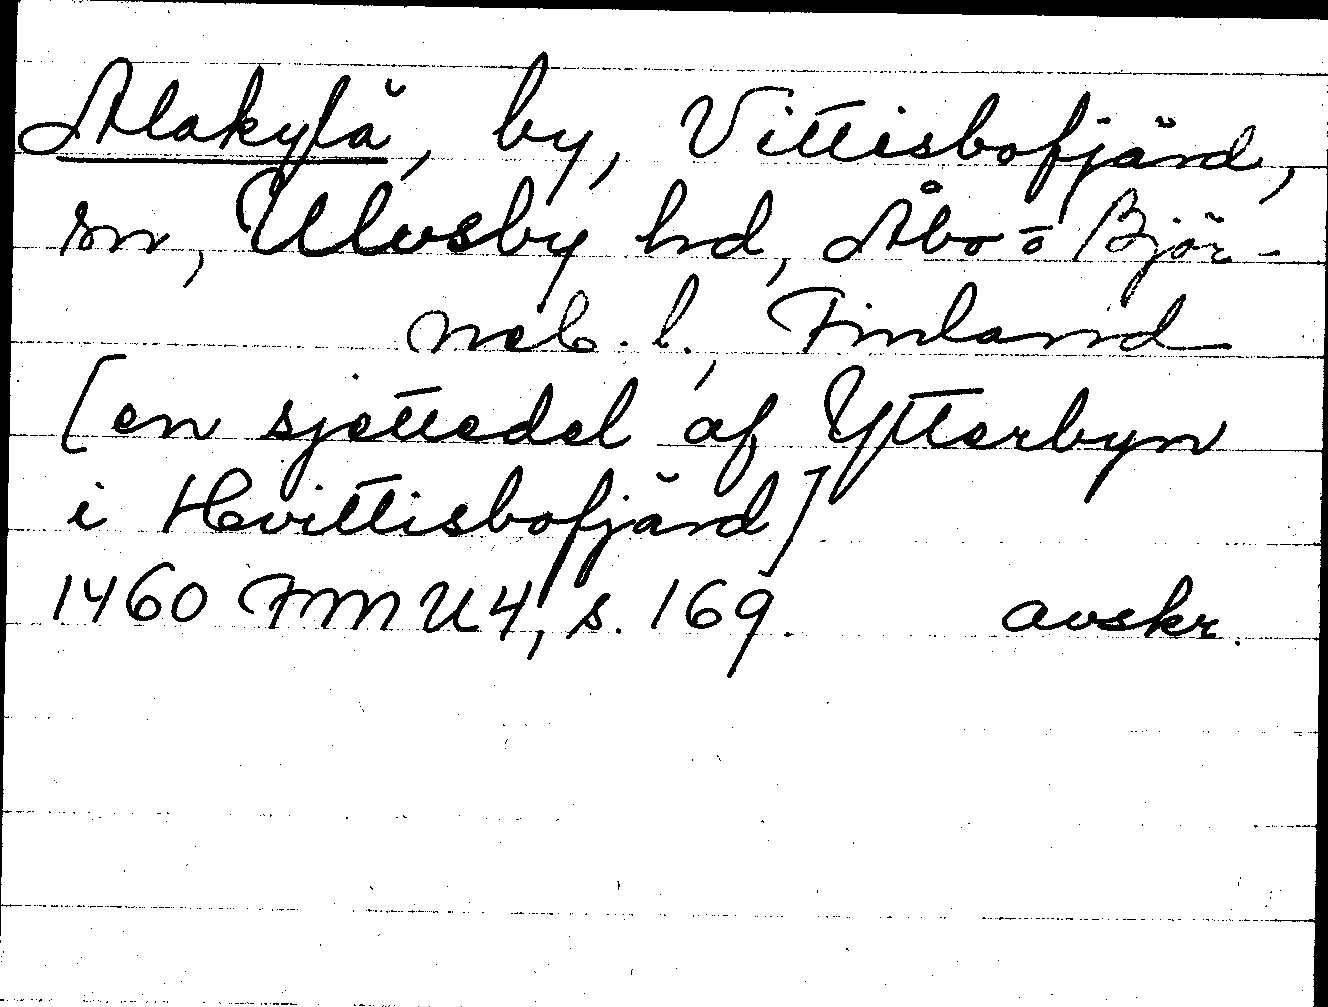 Alakylä, by, Vittisbofjärd,
sn, Ulvsby hd, Åbo o Björ-
neb. l., Finland
[en sjettedel af Ytterbyn
i Hvittisbofjärd]
1460 FMU4, s. 169. avskr.